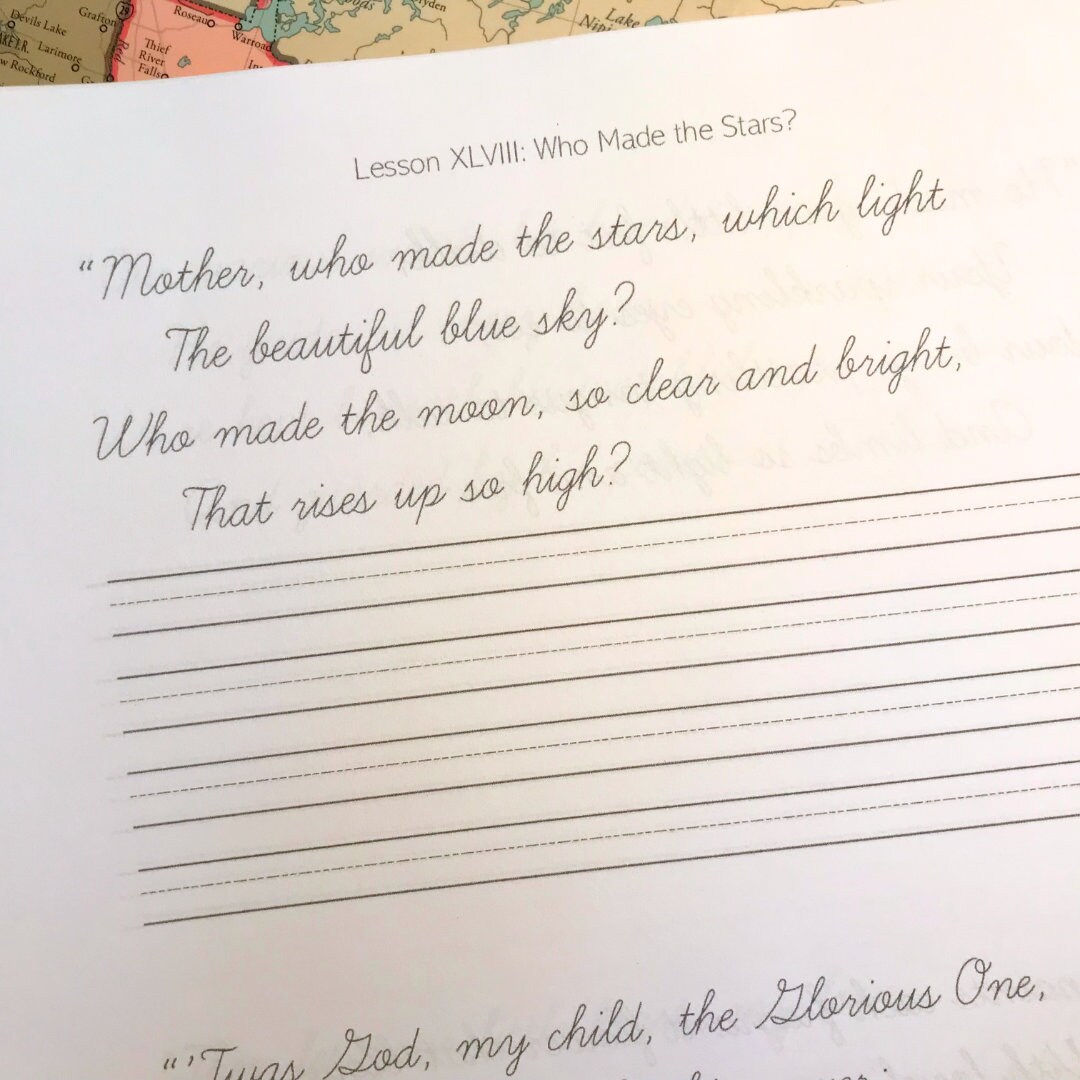 Devils Lake
Grafton
Roseau
Warroad
Larimore
Thief
River
Falls
Red
Rockford
Lake
Lesson XLVIII: Who Made the Stars?
"Mother, who made the stars, which light
The beautiful blue sky?
Who made the moon, so clear and bright,
That rises up so high?
"'Twas God, my child, the Glorious One,